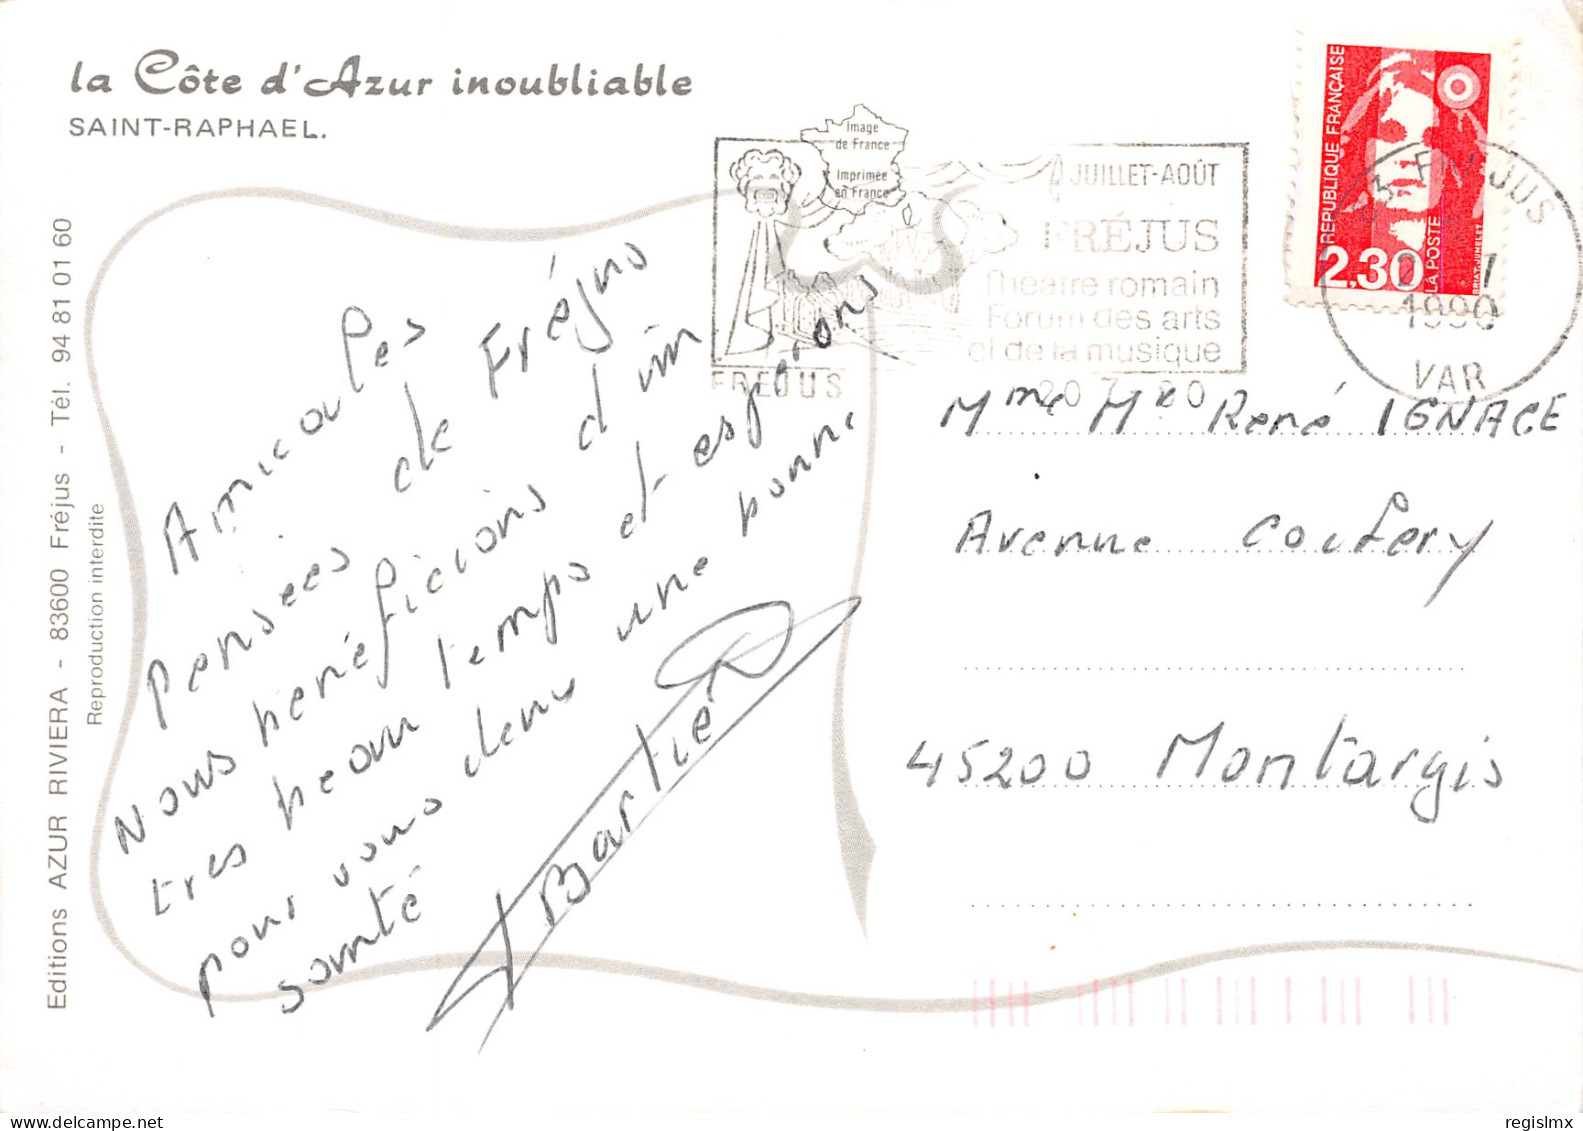 la Côte d'Azur inoubliable
SAINT-RAPHAEL.
Editions AZUR RIVIERA - 83600 Fréjus - Tél. 94 81 01 60
Reproduction interdite
Image
de France
Imprimée
en France
FREJUS
JUILLET-AOÛT
FRÉJUS
Théatre romain
Forum des arts
et de la musique
REPUBLIQUE FRANÇAISE
2,30
LA POSTE
BRIAT-JUMELET
FREJUS
1990
VAR
Amicales
pensées de Fréjus
Nous bénéficions d'un
tres beau temps et espérons
pour vous deux une bonne
santé
Bartier
Mme Mr René IGNACE
Avenue
45200 Montargis
regislmx